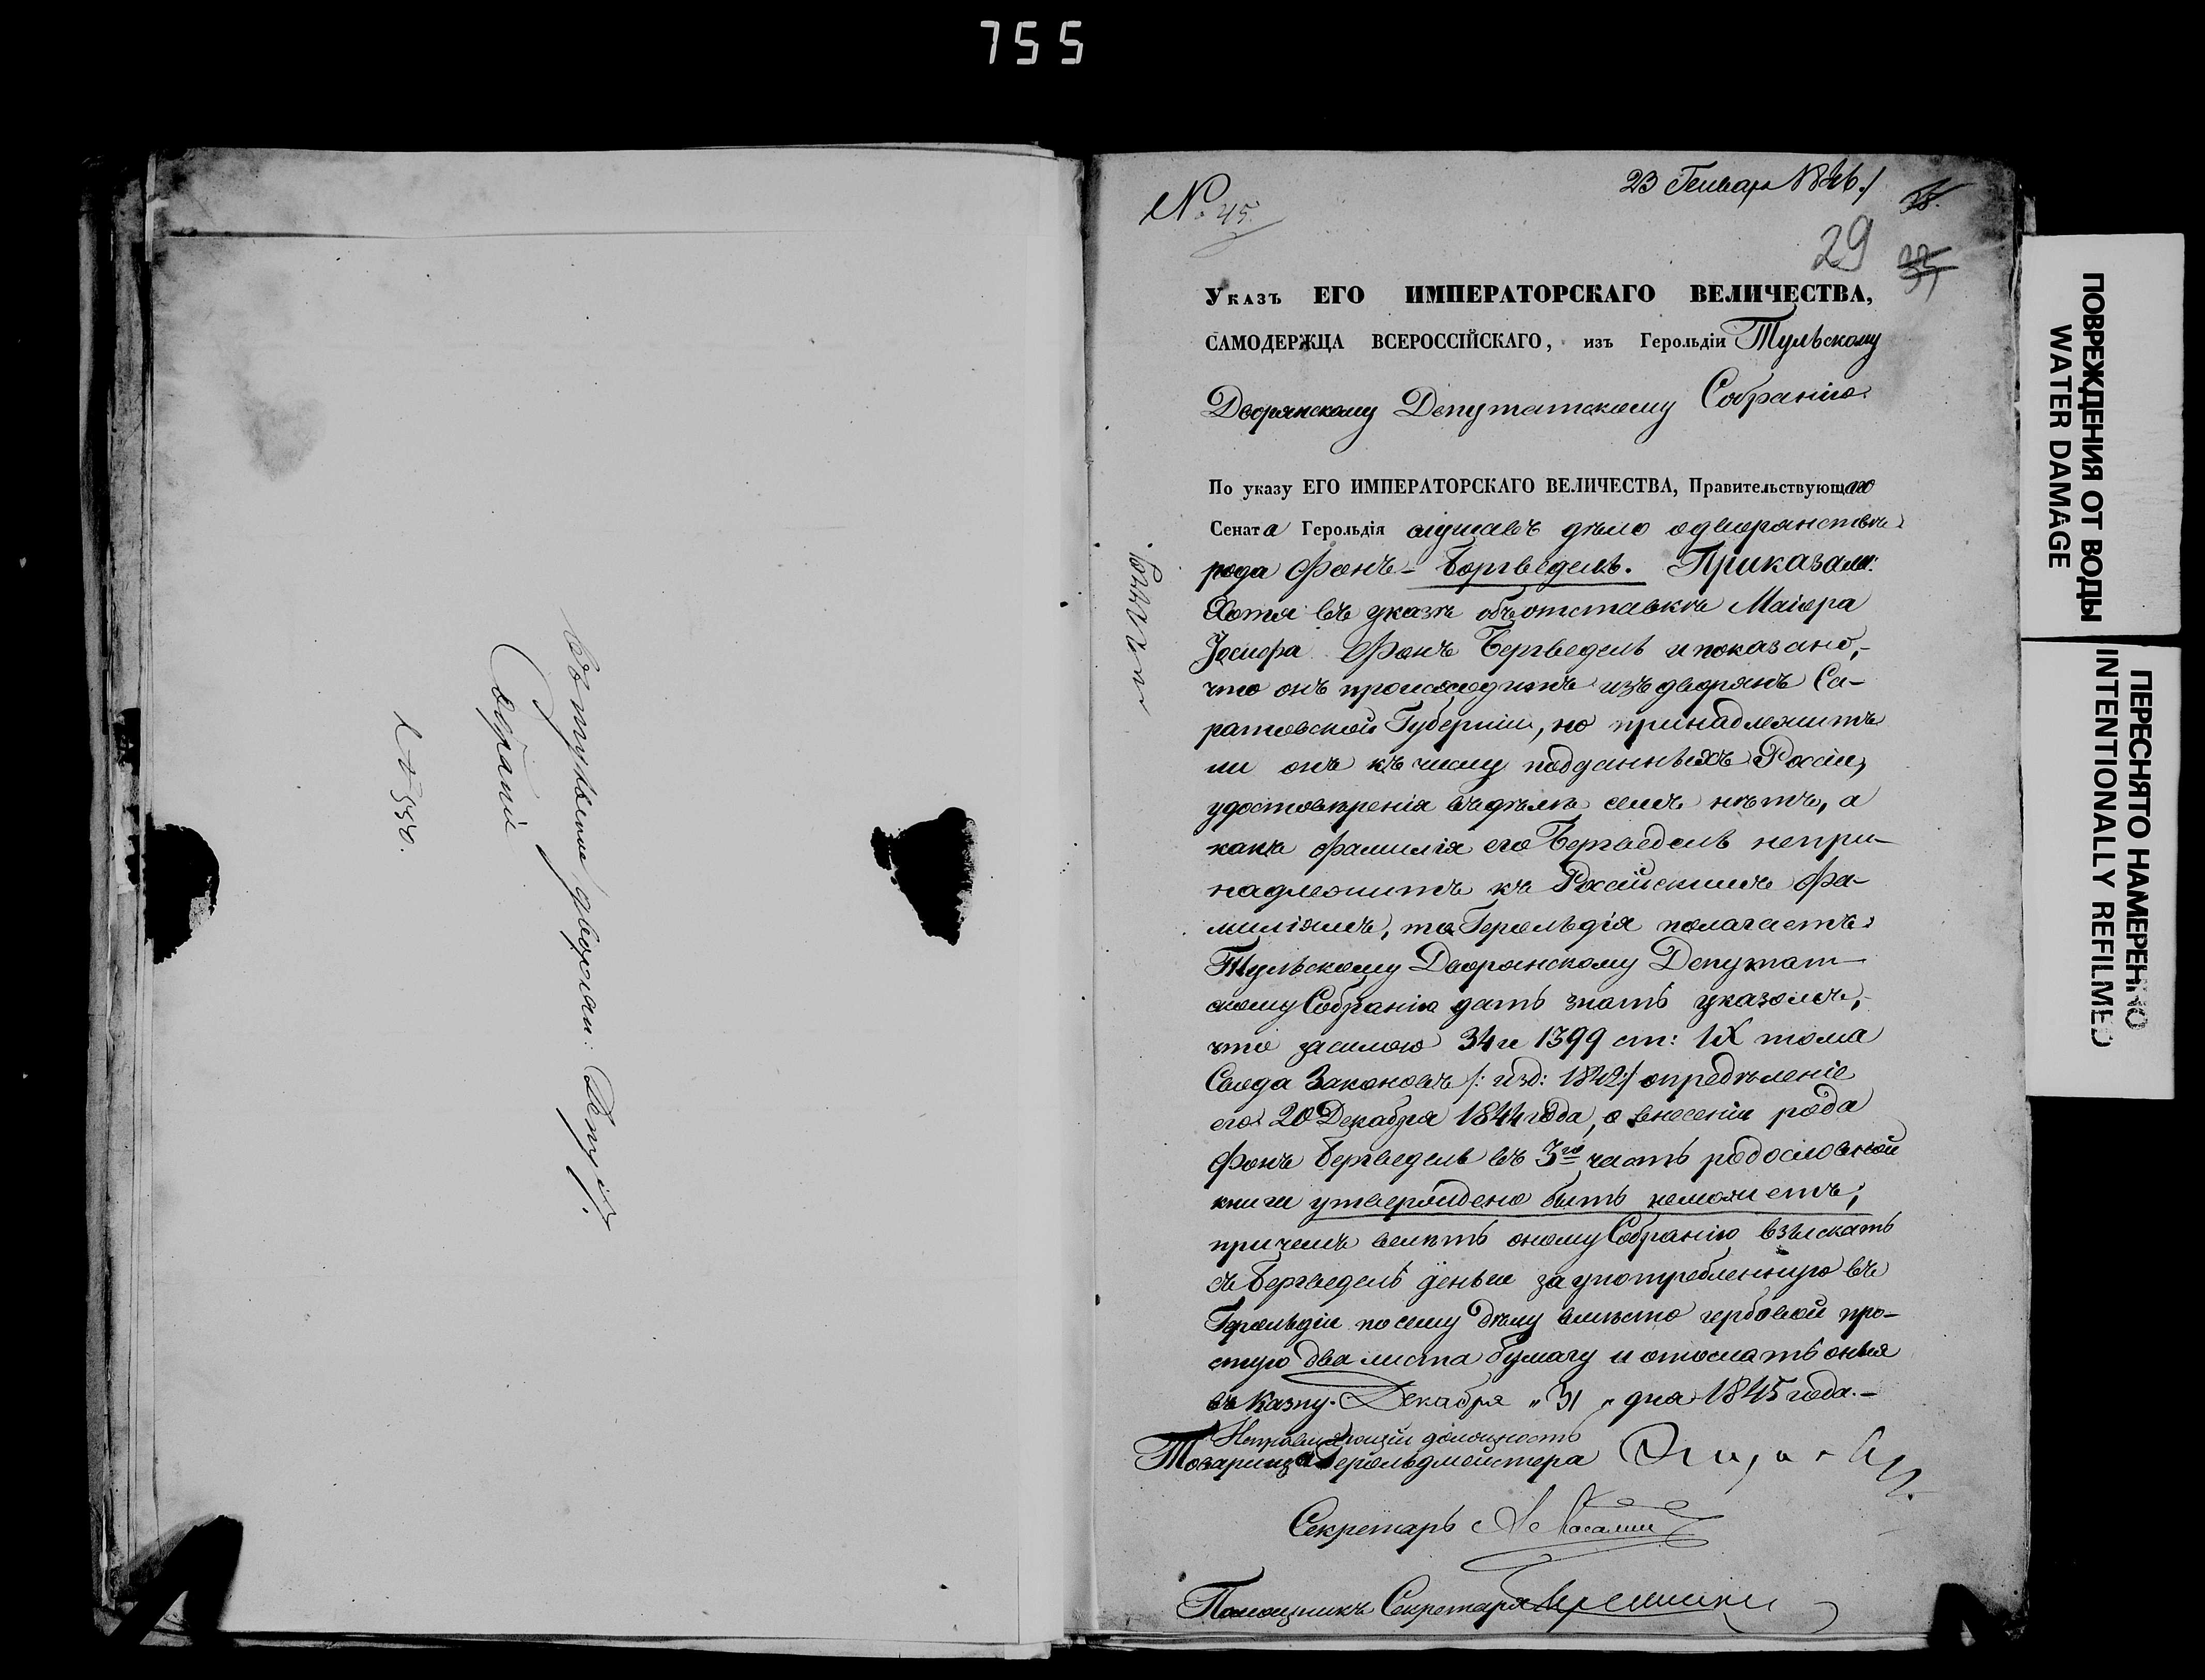 755
въ тульское дворян: депу
Собраніе
№ 45.
23 Генвар 1846./
29
Указъ ЕГО ИМПЕРАТОРСКАГО ВЕЛИЧЕСТВА,
САМОДЕРЖЦА ВСЕРОССІЙСКАГО, изъ Герольдіи Тульскому
Дворянскому Депутатскому Собранію.
По указу ЕГО ИМПЕРАТОРСКАГО ВЕЛИЧЕСТВА, Правительствующаго
Сената Герольдія слушавъ дѣло о дворянствѣ
рода Фонъ-Бергведель. Приказали:
Хотя въ указѣ объ отставкѣ Маіора
Іосифа Фонъ Бергведель и показано,-
что онъ происходитъ изъ дворянъ Са-
ратовской Губерніи, но принадлежитъ
ли онъ къ числу подданныхъ Россіи,
удостовѣренія въ дѣлѣ семъ нѣтъ, а
какъ фамилія его Бергведель непри-
надлежитъ къ Россійскимъ фа-
миліямъ, то Герольдія полагаетъ:
Тульскому Дворянскому Депутат-
скому Собранію дать знать указомъ,-
что за силою 34 и 1399 ст: IX тома
Свода Законовъ /: изд: 1842:/ опредѣленіе
его 20 Декабря 1844 года, о внесеніи рода
Фонъ Бергведель въ 3ю часть родословной
книги утверждено быть неможетъ,
причемъ велѣть оному Собранію взыскать
съ Бергведель деньги за употребленную въ
Герольдіи по сему дѣлу вмѣсто гербовой про-
стую два листа бумагу и отослать оныя
въ Казну. Декабря „31„ дня 1845 года.-
Исправляющій должность
Товарища Герольдмейстера
Секретарь
Помощникъ Секретаря
ПОВРЕЖДЕНИЯ ОТ ВОДЫ
WATER DAMAGE
ПЕРЕСНЯТО НАМЕРЕННО
INTENTIONALLY REFILMED